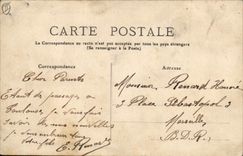 CARTE POSTALE
La Correspondance au recto n'est pas acceptée par tous les pays étrangers
(Se renseigner à la Poste)
Correspondance
Adresse
Cher Parents
Etant de passage a
Toulouse je
savoir de mes nouvelles
Monsieur Renard Honoré
3 Place Sébastopol 3
Marseille
B.D.R.